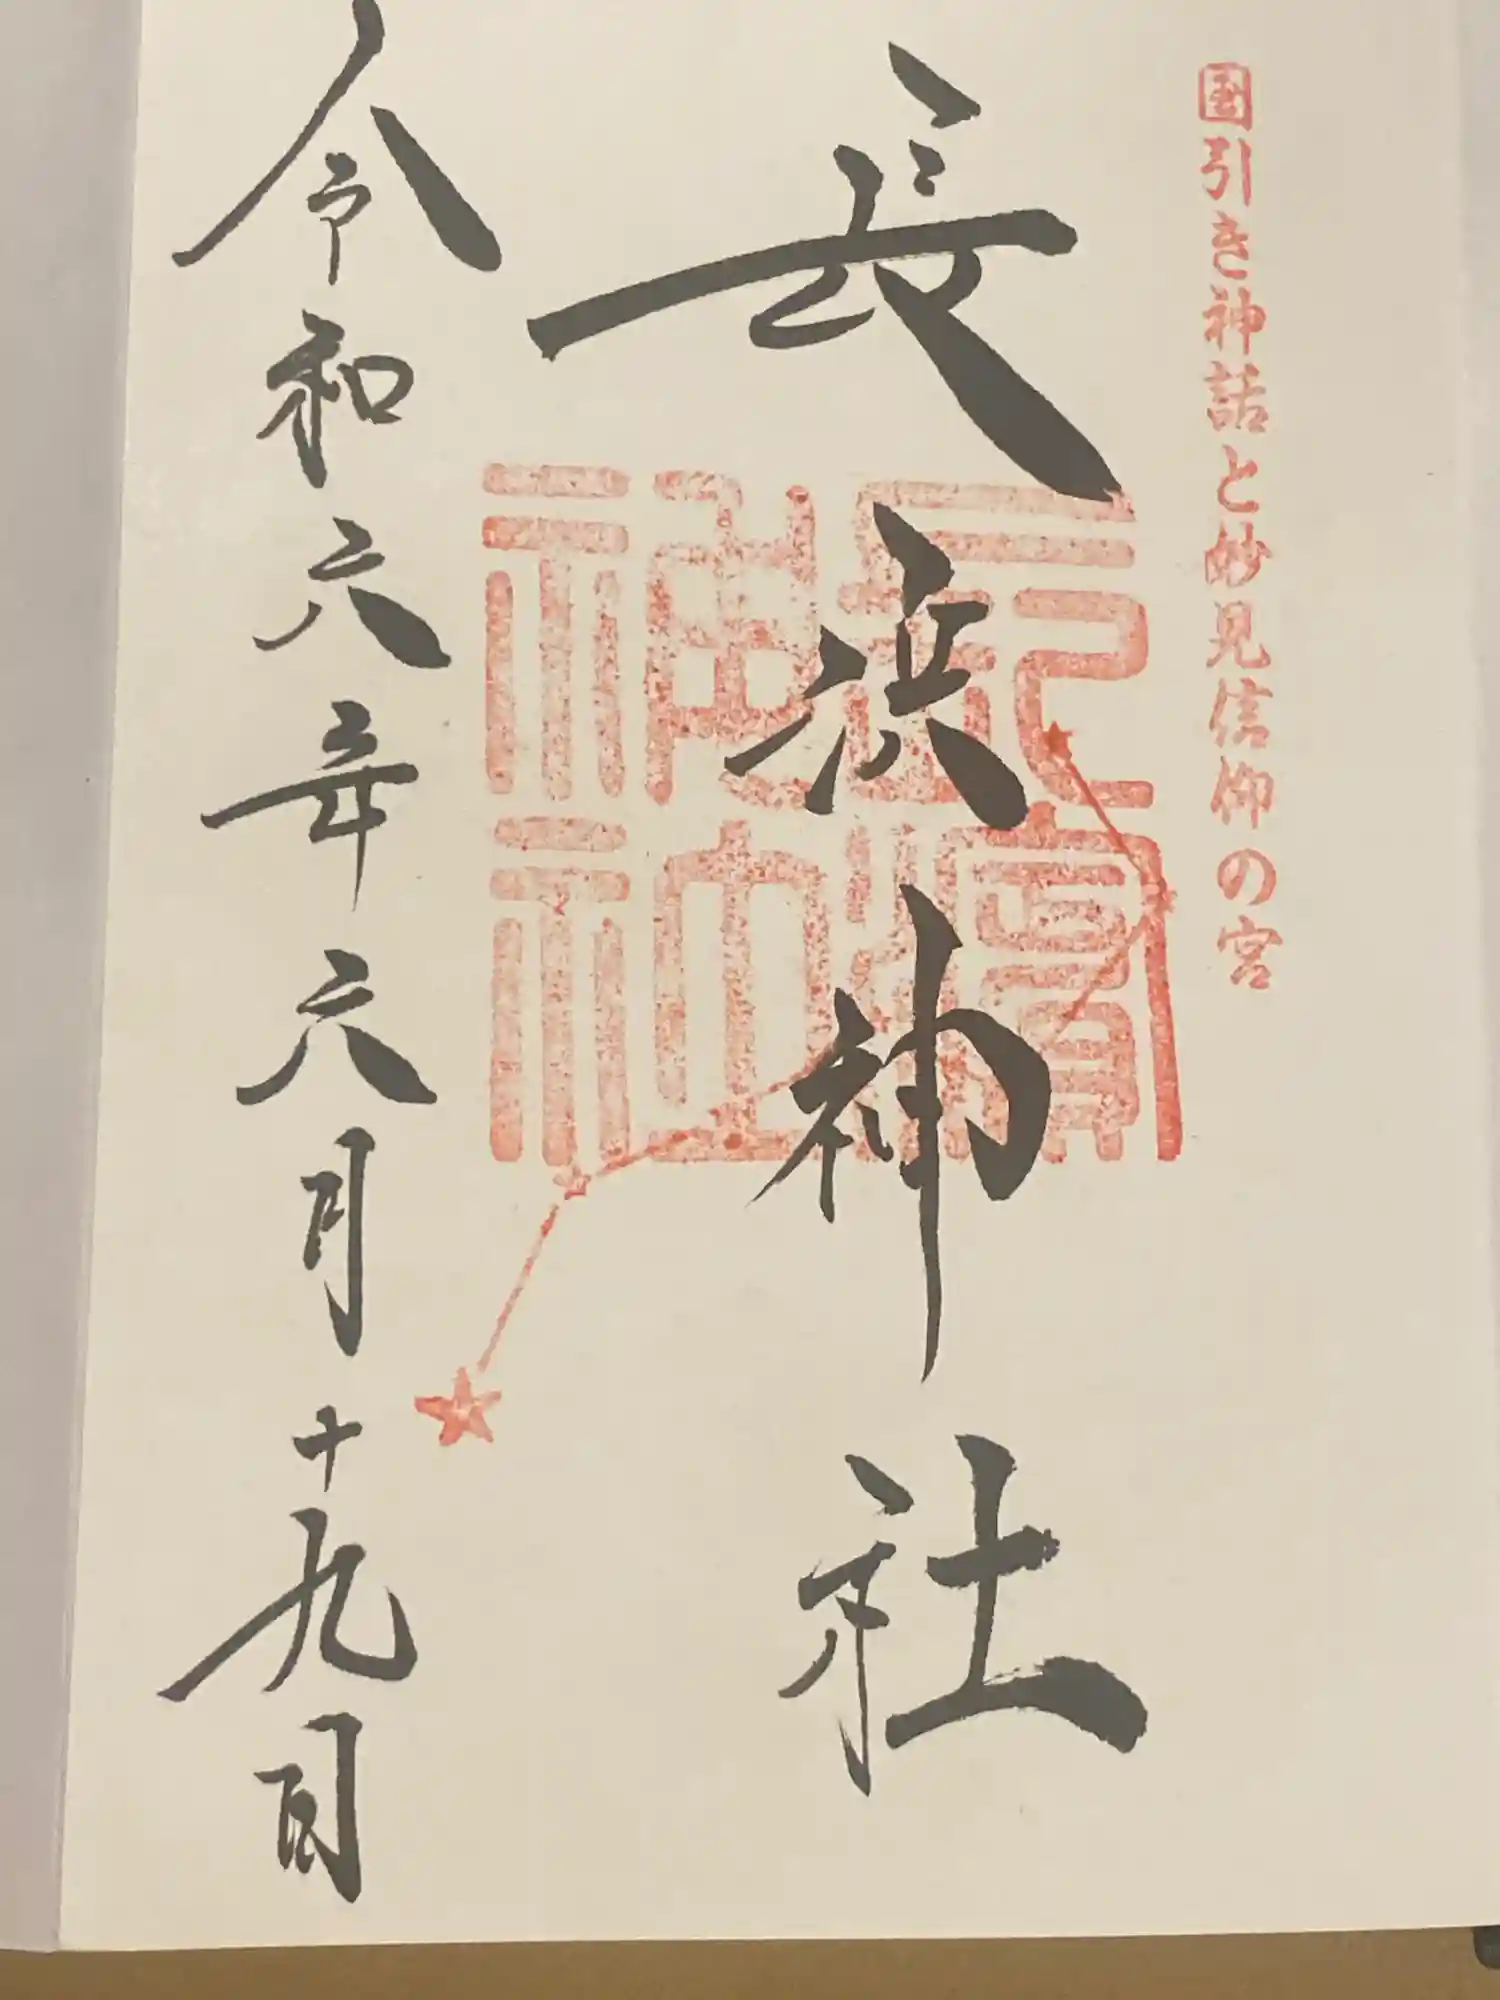 国引き神話と妙見信仰の宮
長浜神社
長濱
神社
令和六年六月十九日